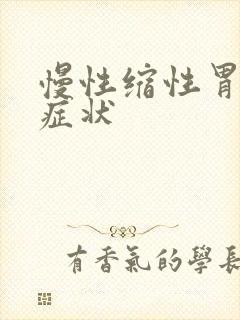 慢性缩性胃
症状
有香氣的學長